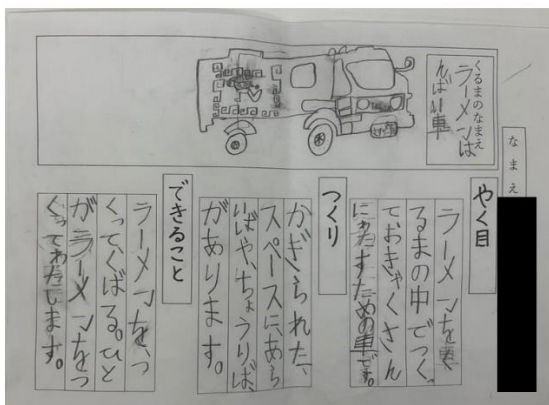 なまえ
くるまのなまえ
ラーメンは
んばい車
やく目
ラーメンをく
るまの中でつくっ
ておきゃくさん
にわたすための車です。
つくり
かぎられた、
スペースにあら
いばや、ちょうりば、
があります。
できること
ラーメンを、つ
くってくばる。ひと
がラーメンをつ
くってわたします。